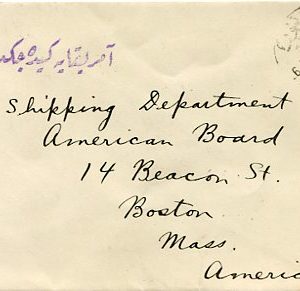 آمريقايه كيده جكد
Shipping Department
American Board
14 Beacon St.
Boston
Mass.
Americ